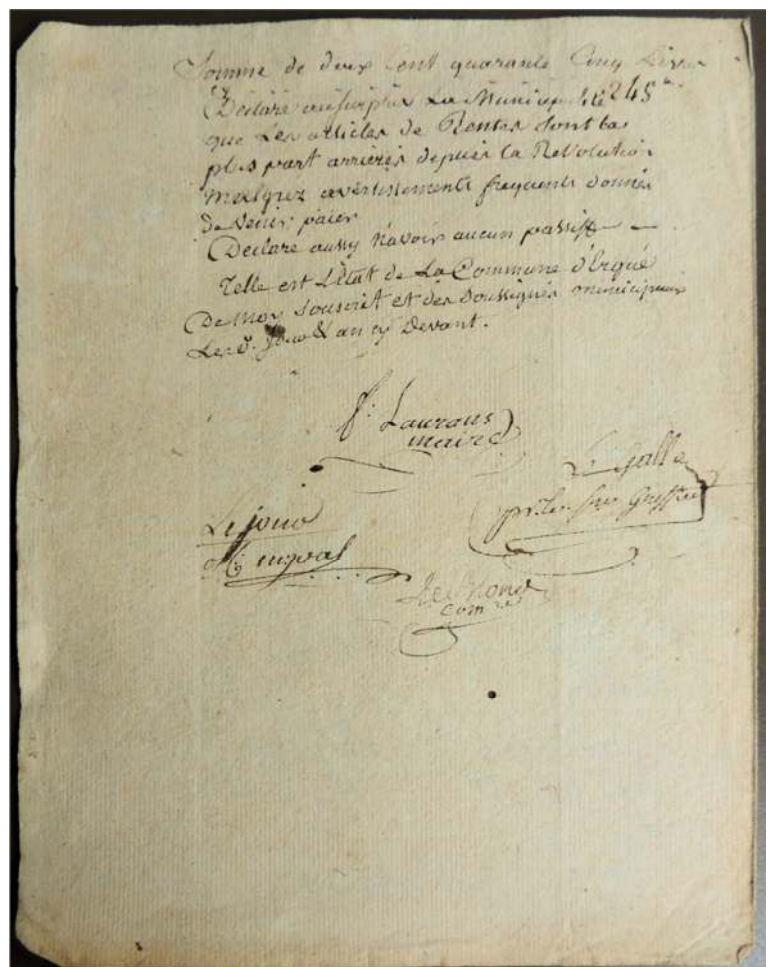 Somme de deux Cent quarante Cinq Livres
Declare au surplus La Municipalité 245
que Les articles de Rentes Sont la
plus part arrièrés depuis la Revolution
malgrez avertissements frequents donnés
de venir paier
Declare aussy N'avoir aucun passif
Telle est L'Etat de La Commune d'Ergué
De Moy Souscrit et des Soussignés municipaux
Les d. Jour & an cy Devant.
Laurans
maire
Le Gall
Greffier
Le jour